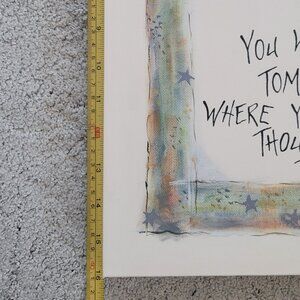 YOU
TOM
WHERE Y
THOU
9
10
11
12
13
14
15
16